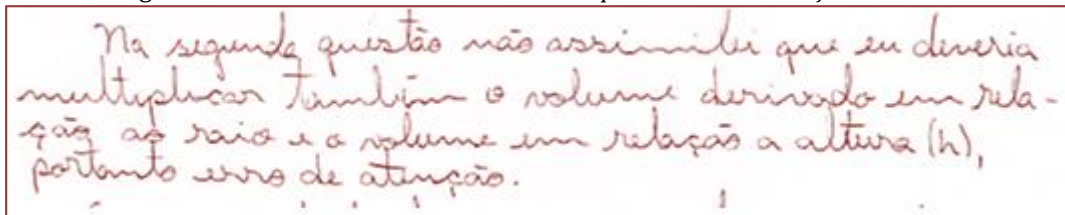 Na segunda questão não assimilei que eu deveria
multiplicar também o volume derivado em rela-
ção ao raio e o volume em relação a altura (h),
portanto erro de atenção.